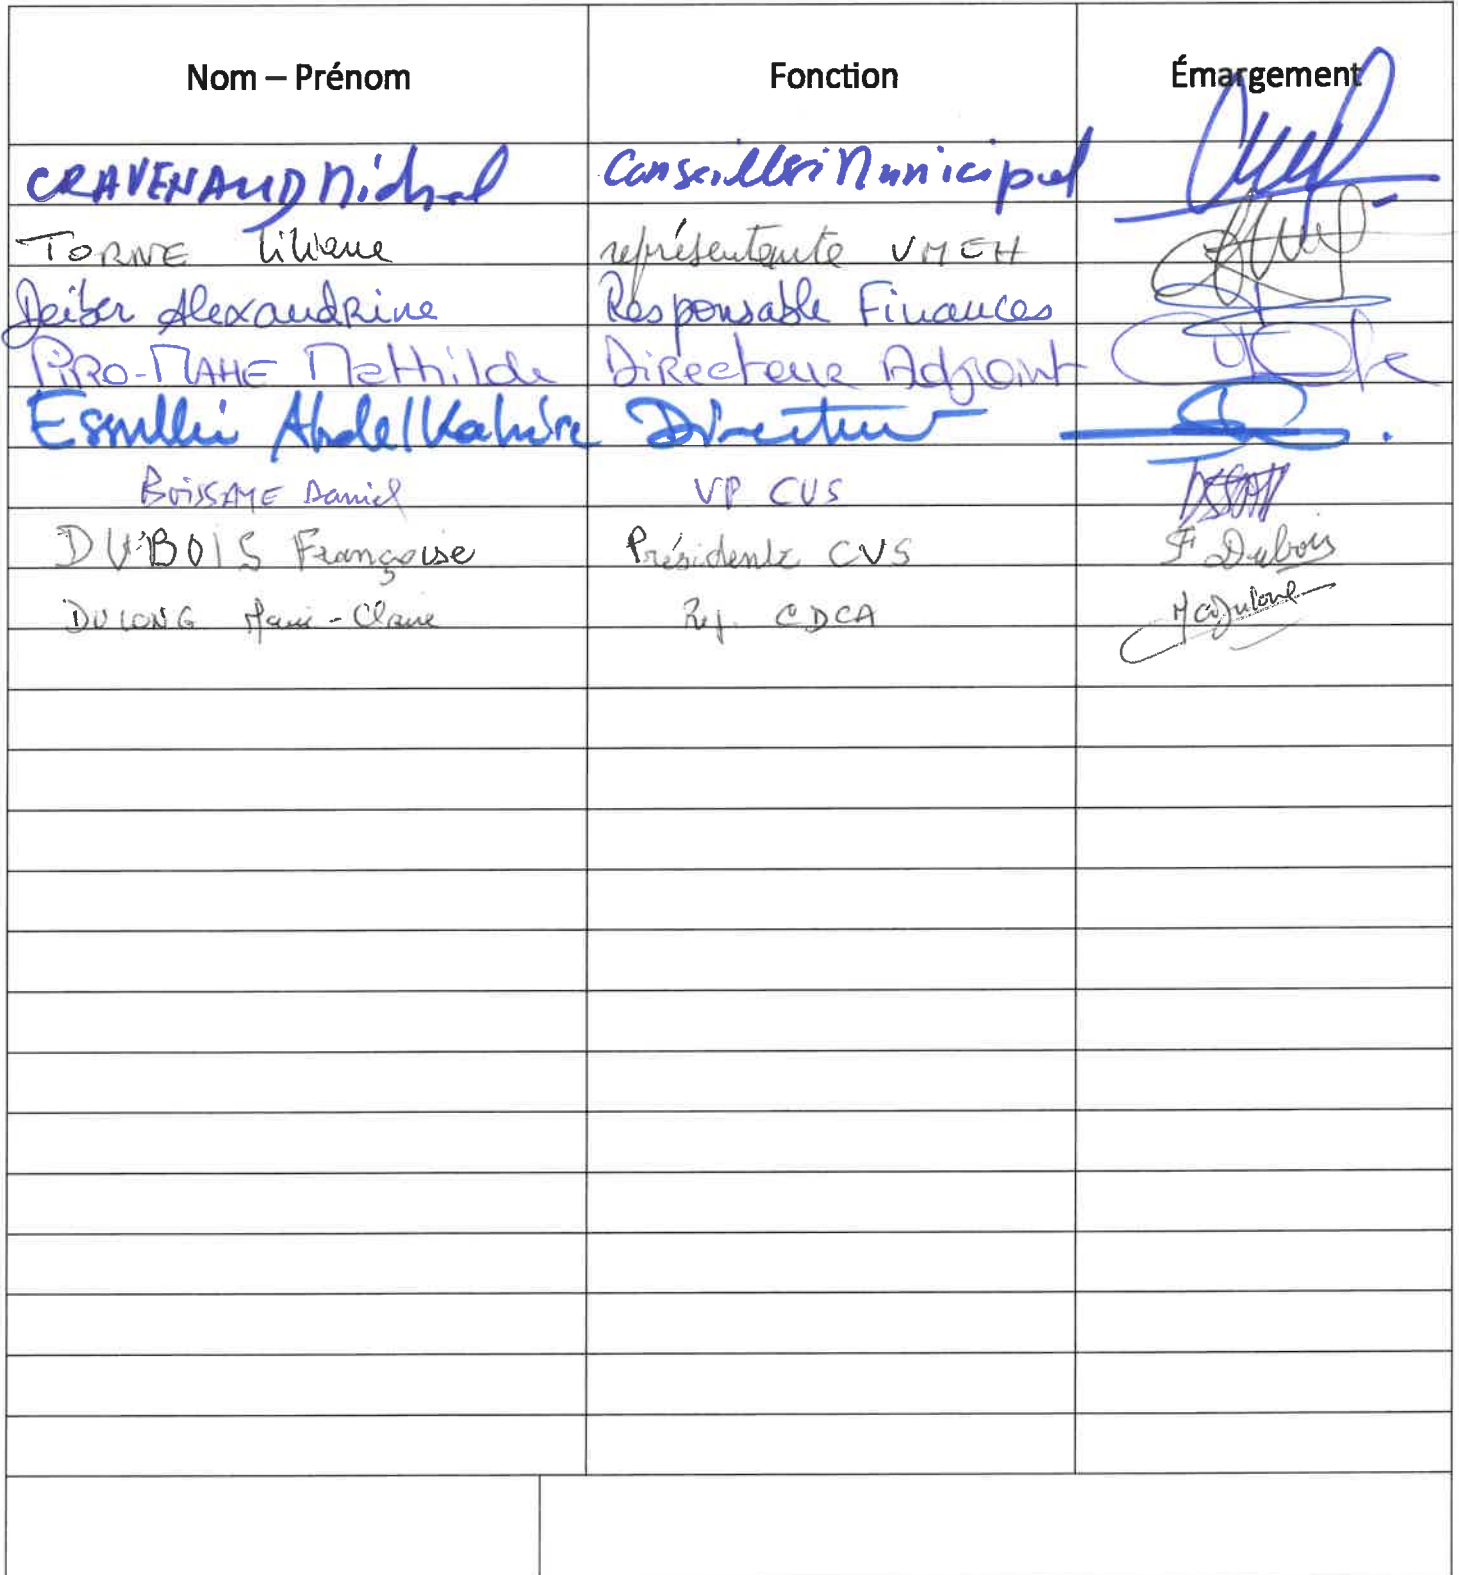 Nom – Prénom Fonction Émargement
CRAVENAUD Michel Conseiller Municipal
TORNE Liliane représentante VMEH
Deiber Alexandrine Responsable Finances
PIRO-MAHE Mathilde Directeur Adjoint
Abdelkahire Directeur
BOISSAYE Daniel VP CVS
DUBOIS Françoise Présidente CVS F Dubois
DULONG Marie-Claire Rep. CDCA